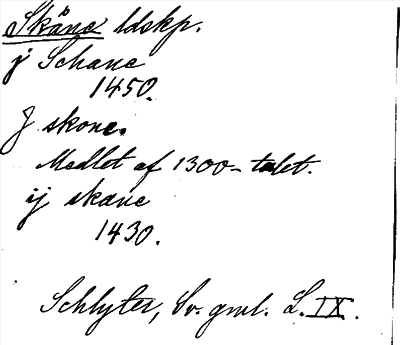 Skåne ldskp.
j Schane
1450.
J skone.
Medlet af 1300-talet.
ij skane
1430.
Schlyter, Sv. gml. L. IX.